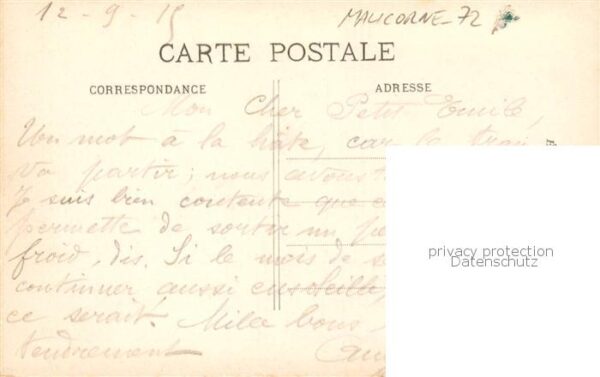 12-9-15 MALICORNE-72
CARTE POSTALE
CORRESPONDANCE ADRESSE
Mon Cher Petit Emile,
Un mot à la hâte, car le train
va partir; nous avons
Je suis bien contente que
permette de sortir un
froid, dis. Si le mois de
continuer aussi ensoleillé,
ce serait! Mille bons
tendrement
privacy protection
Datenschutz